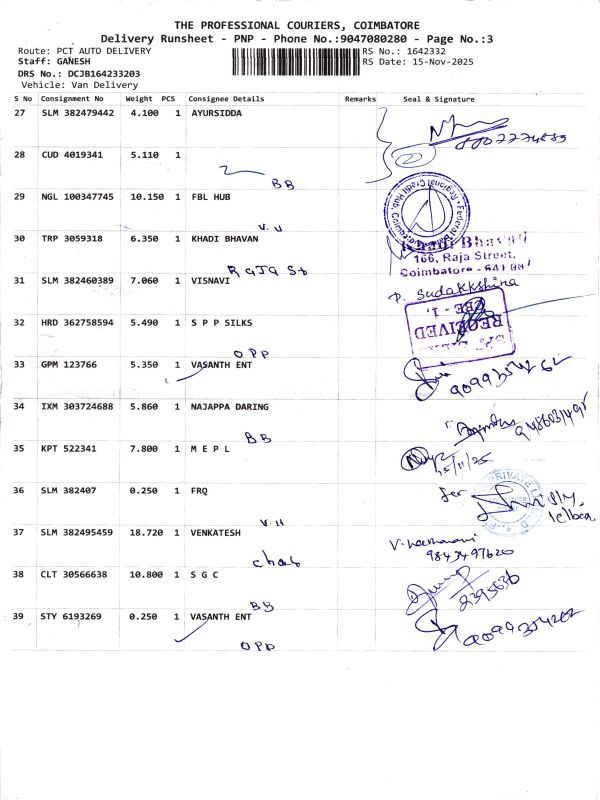 THE PROFESSIONAL COURIERS, COIMBATORE
Delivery Runsheet - PNP - Phone No.:9047080280 - Page No.:3
Route: PCT AUTO DELIVERY RS No.: 1642332
Staff: GANESH RS Date: 15-Nov-2025
DRS No.: DCJB164233203
Vehicle: Van Delivery
S No Consignment No Weight PCS Consignee Details Remarks Seal & Signature
27 SLM 382479442 4.100 1 AYURSIDDA
28 CUD 4019341 5.110 1
BB
29 NGL 100347745 10.150 1 FBL HUB
V.H
30 TRP 3059318 6.350 1 KHADI BHAVAN
Khadi Bhavan
166, Raja Street,
Coimbatore - 641 001
RAJA St
31 SLM 382460389 7.060 1 VISNAVI
P. Sudakkshina
32 HRD 362758594 5.490 1 S P P SILKS
RECEIVED
OPP
33 GPM 123766 5.350 1 VASANTH ENT
34 IXM 303724688 5.860 1 NAJAPPA DARING
BB
35 KPT 522341 7.800 1 M E P L
15/11/25
36 SLM 382407 0.250 1 FRQ
for
V.H
37 SLM 382495459 18.720 1 VENKATESH
9843497620
38 CLT 30566638 10.800 1 S G C
2395636
BB
39 STY 6193269 0.250 1 VASANTH ENT
OPP